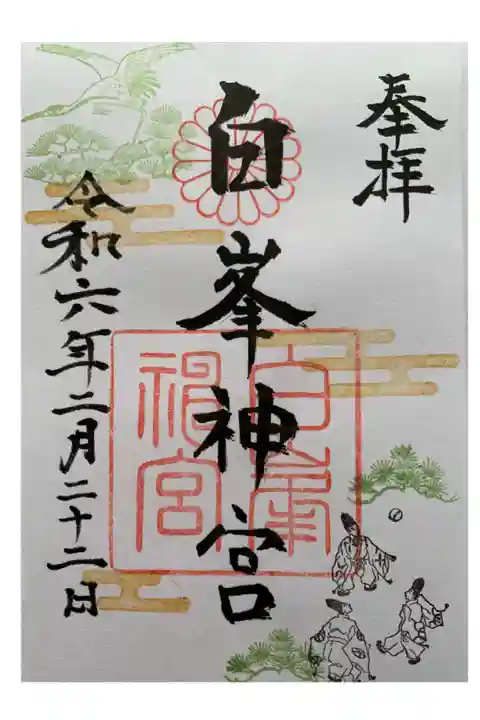 奉拝
白峯神宮
白峯
神宮
令和六年二月二十二日